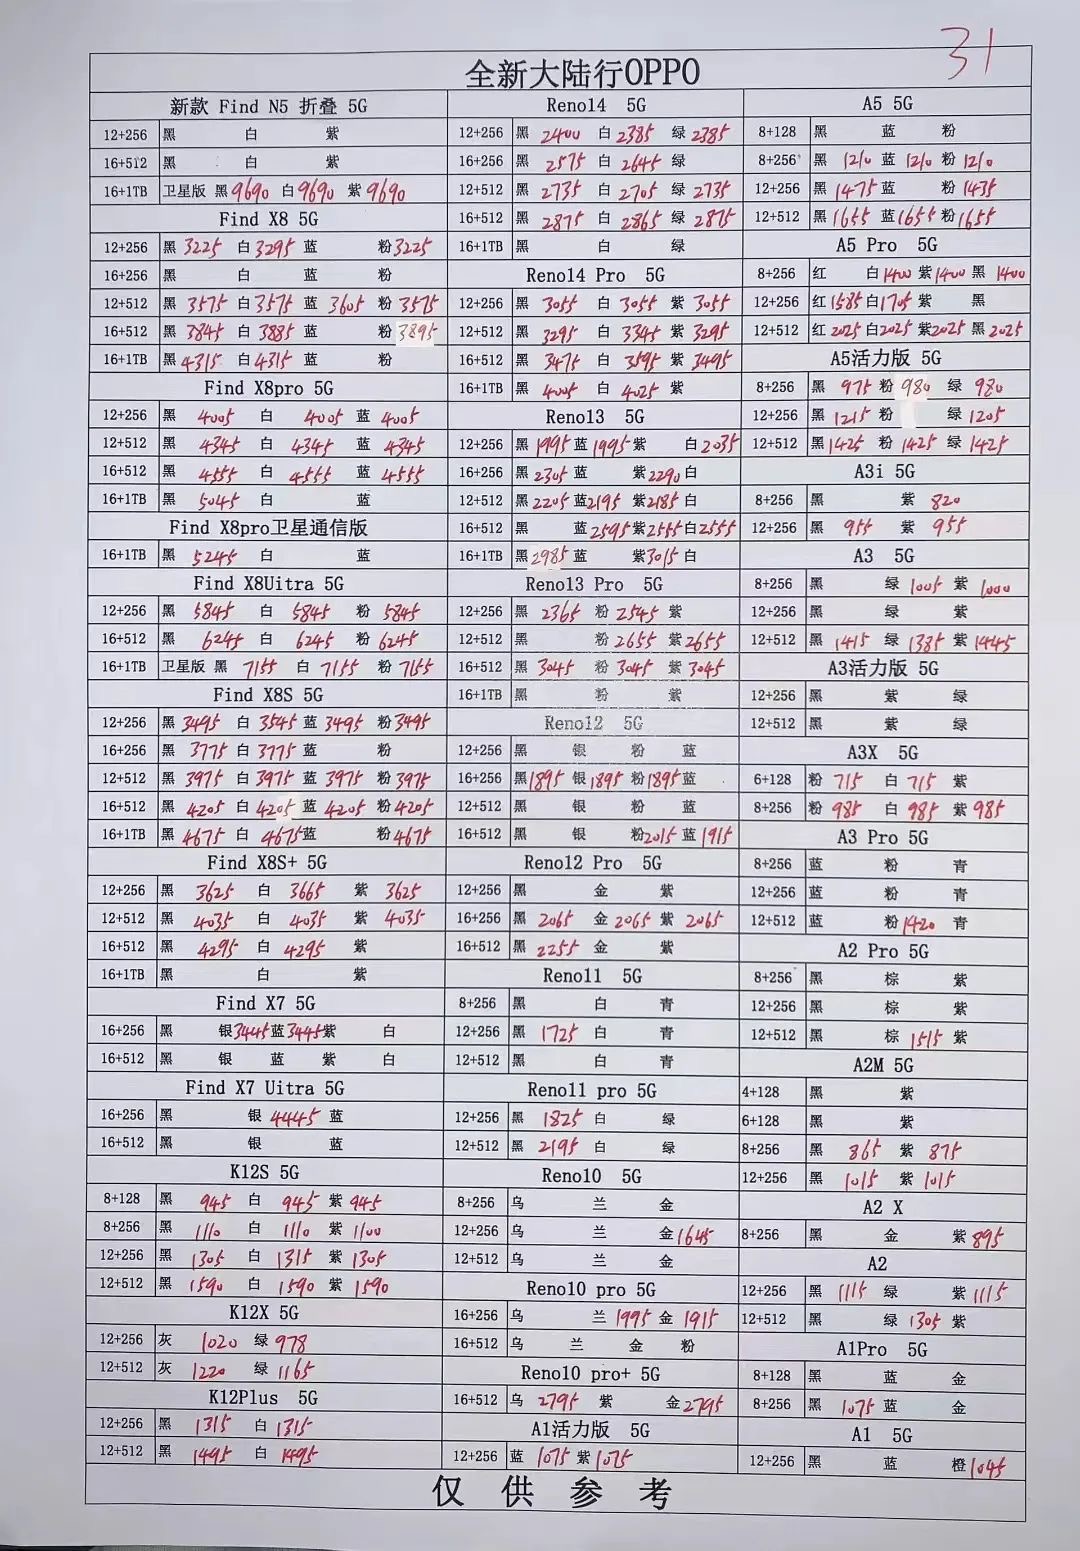 31
全新大陆行OPPO
新款 Find N5 折叠 5G
12+256 黑 白 紫
16+512 黑 白 紫
16+1TB 卫星版 黑9690 白9690 紫9690
Find X8 5G
12+256 黑3225 白3295 蓝 粉3225
16+256 黑 白 蓝 粉
12+512 黑3575 白3575 蓝3605 粉3575
16+512 黑3845 白3885 蓝 粉3895
16+1TB 黑4315 白4315 蓝 粉
Find X8pro 5G
12+256 黑 4005 白 4005 蓝 4005
12+512 黑 4345 白 4345 蓝 4345
16+512 黑 4555 白 4555 蓝 4555
16+1TB 黑 5045 白 蓝
Find X8pro卫星通信版
16+1TB 黑 5245 白 蓝
Find X8Uitra 5G
12+256 黑 5845 白 5845 粉 5845
16+512 黑 6245 白 6245 粉 6245
16+1TB 卫星版 黑 7155 白 7155 粉 7155
Find X8S 5G
12+256 黑3495 白3545 蓝3495 粉3495
16+256 黑3775 白3775 蓝 粉
12+512 黑3975 白3975 蓝3975 粉3975
16+512 黑4205 白4205 蓝4205 粉4205
16+1TB 黑4675 白4675 蓝 粉4675
Find X8S+ 5G
12+256 黑 3625 白 3665 紫 3625
12+512 黑 4035 白 4035 紫 4035
16+512 黑 4295 白 4295 紫
16+1TB 黑 白 紫
Find X7 5G
16+256 黑 银3445 蓝3445 紫 白
16+512 黑 银 蓝 紫 白
Find X7 Uitra 5G
16+256 黑 银 4445 蓝
16+512 黑 银 蓝
K12S 5G
8+128 黑 945 白 945 紫 945
8+256 黑 1110 白 1110 紫 1100
12+256 黑 1305 白 1315 紫 1305
12+512 黑 1590 白 1590 紫 1590
K12X 5G
12+256 灰 1020 绿 978
12+512 灰 1220 绿 1165
K12Plus 5G
12+256 黑 1315 白 1315
12+512 黑 1495 白 1495
Reno14 5G
12+256 黑 2400 白 2385 绿 2385
16+256 黑 2575 白 2645 绿
12+512 黑 2735 白 2705 绿 2735
16+512 黑 2875 白 2865 绿 2875
16+1TB 黑 白 绿
Reno14 Pro 5G
12+256 黑 3055 白 3055 紫 3055
12+512 黑 3295 白 3345 紫 3295
16+512 黑 3475 白 3595 紫 3495
16+1TB 黑 4005 白 4025 紫
Reno13 5G
12+256 黑1995 蓝1995 紫 白2035
16+256 黑2305 蓝 紫2290 白
12+512 黑2205 蓝2195 紫2185 白
16+512 黑 蓝2595 紫2555 白2555
16+1TB 黑2985 蓝 紫3015 白
Reno13 Pro 5G
12+256 黑 2365 粉 2545 紫
12+512 黑 粉2655 紫2655
16+512 黑 3045 粉 3045 紫 3045
16+1TB 黑 粉 紫
Reno12 5G
12+256 黑 银 粉 蓝
16+256 黑1895 银1895 粉1895 蓝
12+512 黑 银 粉 蓝
16+512 黑 银 粉2015 蓝1915
Reno12 Pro 5G
12+256 黑 金 紫
16+256 黑 2065 金 2065 紫 2065
16+512 黑 2255 金 紫
Reno11 5G
8+256 黑 白 青
12+256 黑 1725 白 青
12+512 黑 白 青
Reno11 pro 5G
12+256 黑 1825 白 绿
12+512 黑 2195 白 绿
Reno10 5G
8+256 乌 兰 金
12+256 乌 兰 金1645
12+512 乌 兰 金
Reno10 pro 5G
16+256 乌 兰 1995 金 1915
16+512 乌 兰 金 粉
Reno10 pro+ 5G
16+512 乌 2795 紫 金2795
A1活力版 5G
12+256 蓝 1075 紫1075
A5 5G
8+128 黑 蓝 粉
8+256 黑 1210 蓝 1210 粉 1210
12+256 黑1475 蓝 粉1435
12+512 黑1655 蓝1655 粉1655
A5 Pro 5G
8+256 红 白1400 紫1400 黑 1400
12+256 红1585 白1705 紫 黑
12+512 红2025 白2025 紫2025 黑2025
A5活力版 5G
8+256 黑 975 粉 980 绿 980
12+256 黑1215 粉 绿1205
12+512 黑1425 粉 1425 绿1425
A3i 5G
8+256 黑 紫 820
12+256 黑 955 紫 955
A3 5G
8+256 黑 绿 1005 紫 1000
12+256 黑 绿 紫
12+512 黑 1415 绿 1385 紫 1445
A3活力版 5G
12+256 黑 紫 绿
12+512 黑 紫 绿
A3X 5G
6+128 粉 715 白 715 紫
8+256 粉 985 白 985 紫985
A3 Pro 5G
8+256 蓝 粉 青
12+256 蓝 粉 青
12+512 蓝 粉1420 青
A2 Pro 5G
8+256 黑 棕 紫
12+256 黑 棕 紫
12+512 黑 棕 1515 紫
A2M 5G
4+128 黑 紫
6+128 黑 紫
8+256 黑 865 紫 875
12+256 黑 1015 紫 1015
A2 X
8+256 黑 金 紫895
A2
12+256 黑 1115 绿 紫1115
12+512 黑 绿 1305 紫
A1Pro 5G
8+128 黑 蓝 金
8+256 黑 1075 蓝 金
A1 5G
12+256 黑 蓝 橙1045
仅供参考